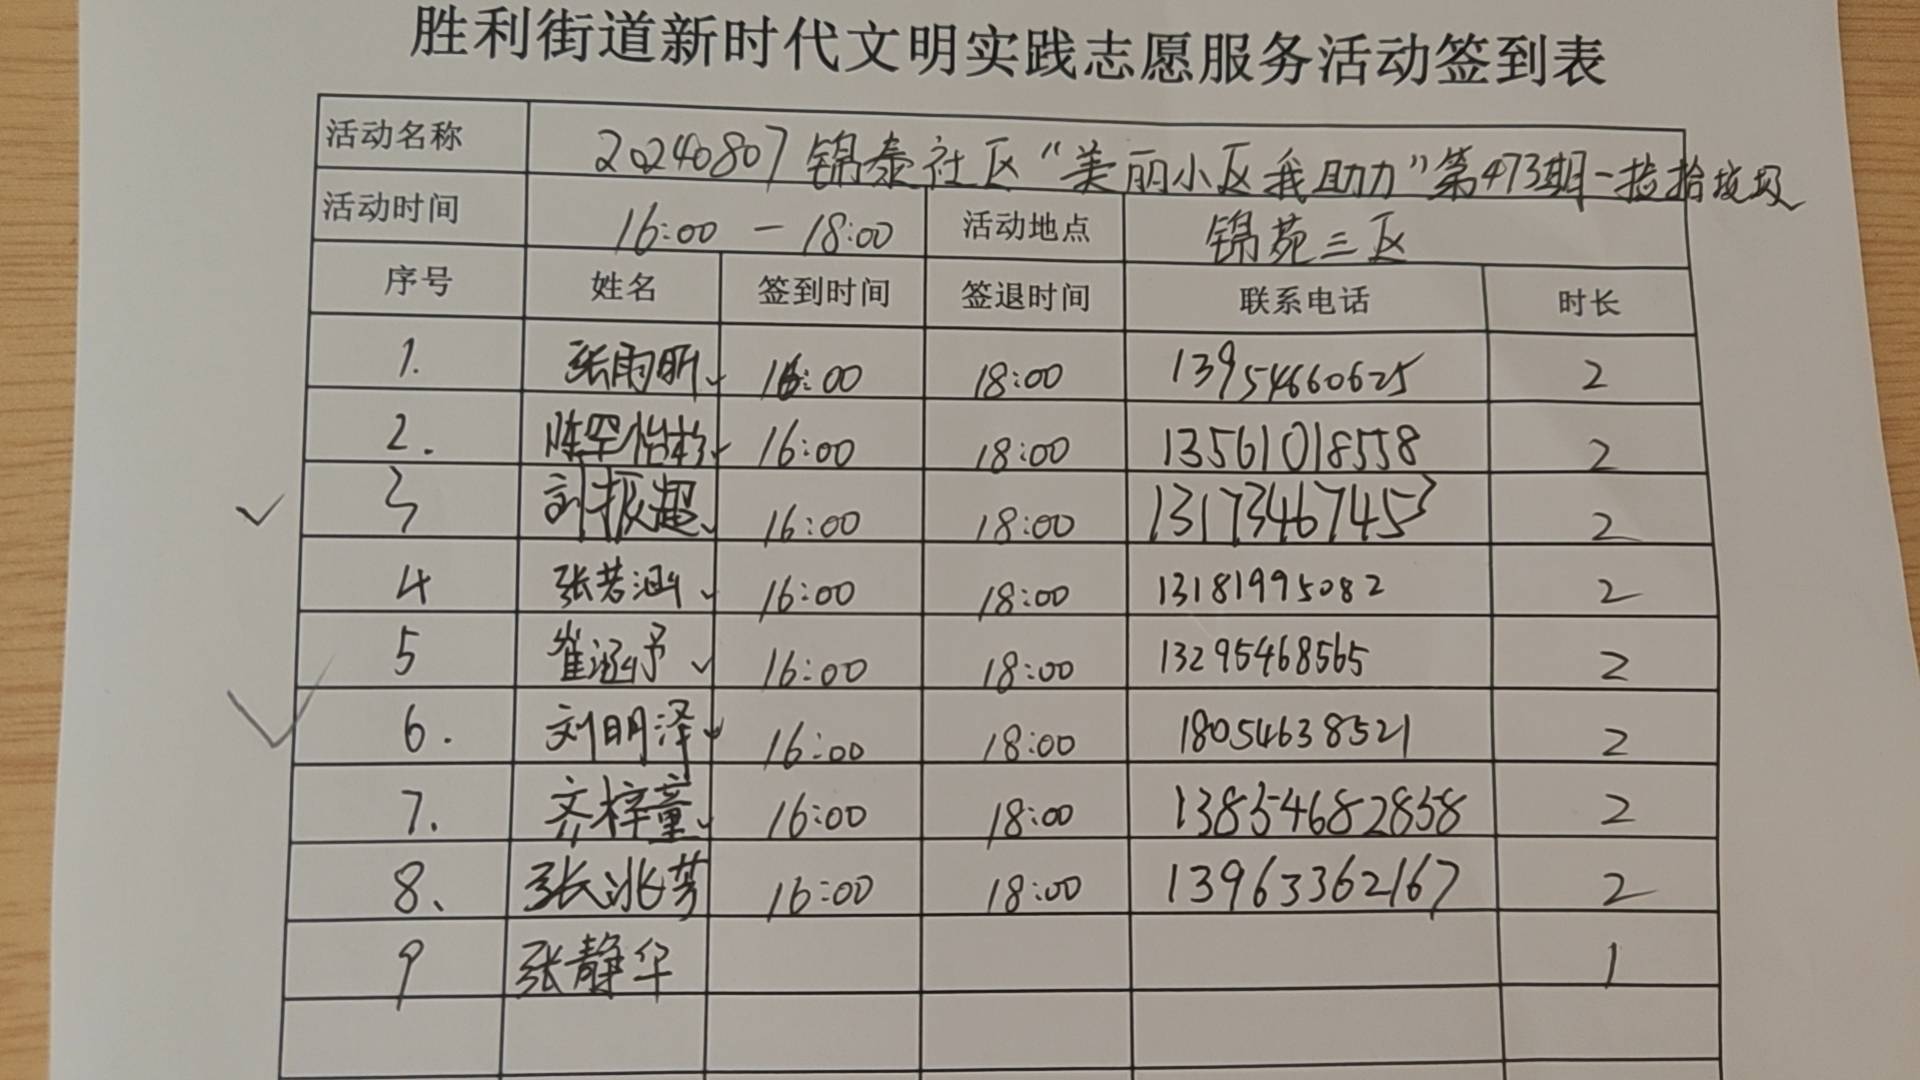 胜利街道新时代文明实践志愿服务活动签到表
活动名称 20240807锦泰社区“美丽小区我助力”第473期-捡拾垃圾
活动时间 16:00-18:00 活动地点 锦苑三区
序号 姓名 签到时间 签退时间 联系电话 时长
1. 张雨昕 16:00 18:00 13954660625 2
2. 16:00 18:00 13561018558 2
3 刘振超 16:00 18:00 13173467453 2
4 张若涵 16:00 18:00 13181995082 2
5 崔涵予 16:00 18:00 13295468565 2
6. 刘明泽 16:00 18:00 18054638521 2
7. 齐梓童 16:00 18:00 13854682858 2
8、 张兆芳 16:00 18:00 13963362167 2
9 张静华 1